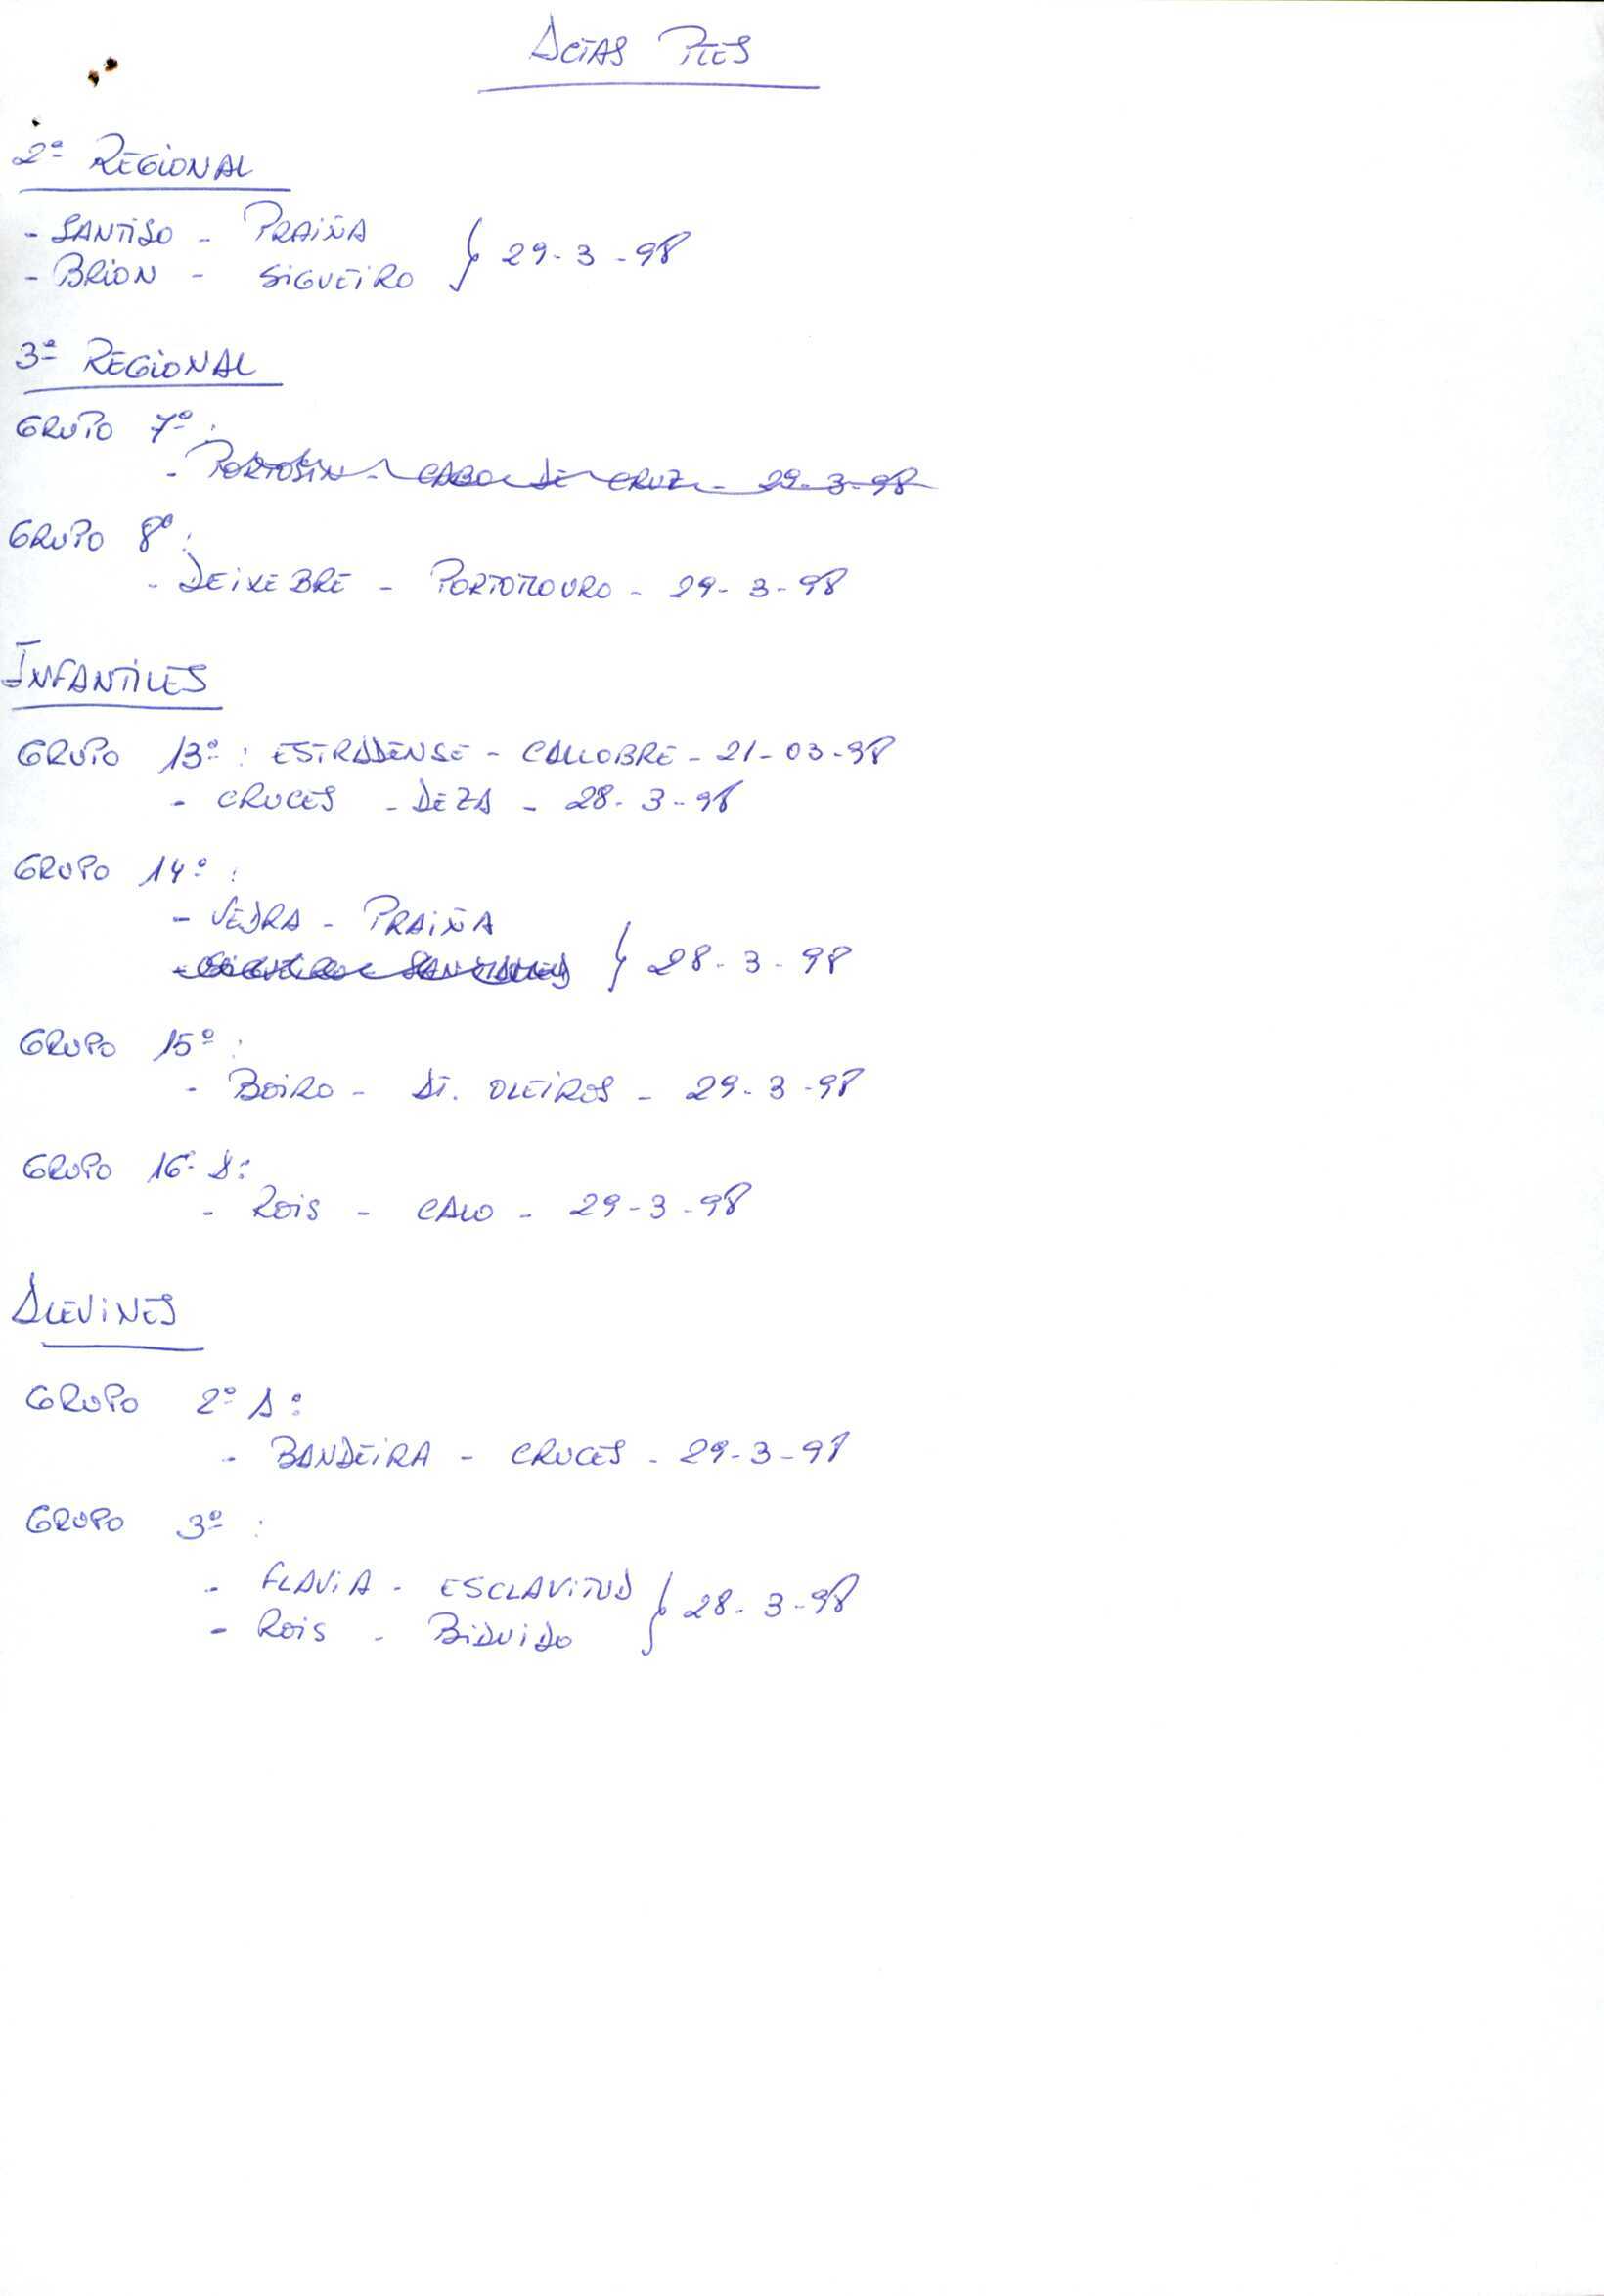 ACTAS PTES
2ª REGIONAL
- SANTISO - PRAIÑA
- BRION - SIGUEIRO } 29-3-98
3ª REGIONAL
GRUPO 7º:
- PORTOSIN - CABO DE CRUZ - 29-3-98
GRUPO 8º:
- DEIXEBRE - PORTOMOURO - 29-3-98
INFANTILES
GRUPO 13º: ESTRADENSE - CALLOBRE - 21-03-98
- CRUCES - DEZA - 28-3-98
GRUPO 14º:
- VEDRA - PRAIÑA
} 28-3-98
GRUPO 15º:
- BOIRO - AT. OLEIROS - 29-3-98
GRUPO 16º A:
- ROIS - CALO - 29-3-98
ALEVINES
GRUPO 2º A:
- BANDEIRA - CRUCES - 29-3-98
GRUPO 3º:
- FLAVIA - ESCLAVITUD
- ROIS - BIDUIDO } 28-3-98